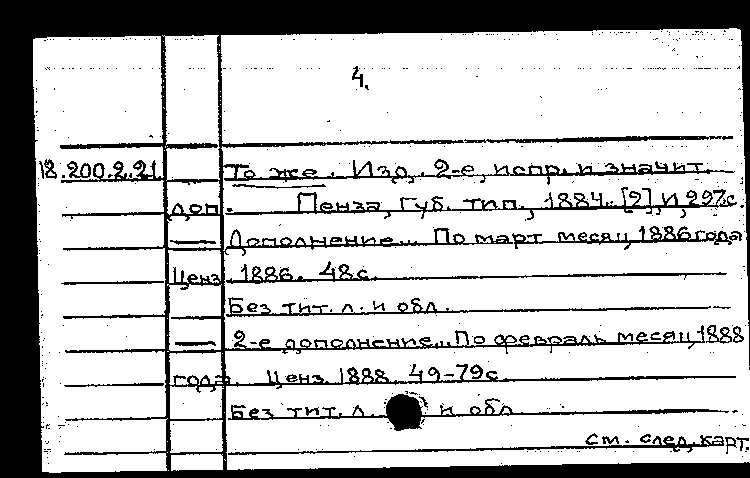 4.
18.200.2.21 То же. Изд. 2-е, испр. и значит.
доп. Пенза, Губ. тип., 1884. [2], II, 297с.
— Дополнение... По март месяц 1886 года
Ценз. 1886. 48с.
Без тит. л. и обл.
— 2-е дополнение... По февраль месяц 1888
года. Ценз. 1888. 49-79с.
Без тит. л. и обл.
См. след. карт.